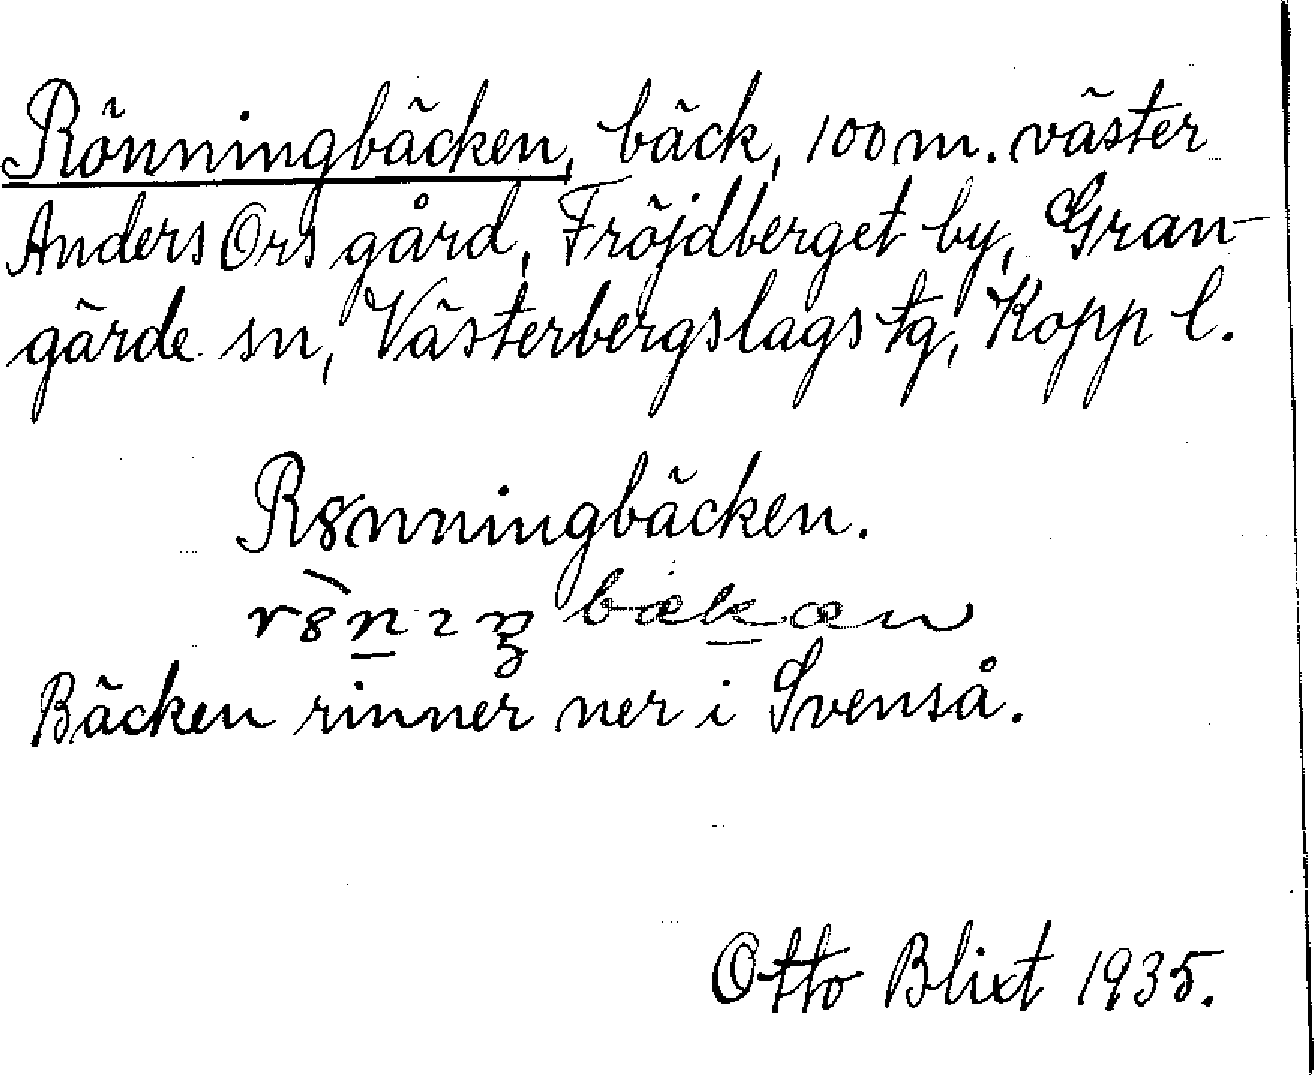 Rönningbäcken, bäck, 100 m. väster
Anders Ors gård, Fröjdberget by, Gran-
gärde sn, Västerbergslags tg, Kopp l.
Rȣnningbäcken.
Bäcken rinner ner i Svenså.
Otto Blixt 1935.